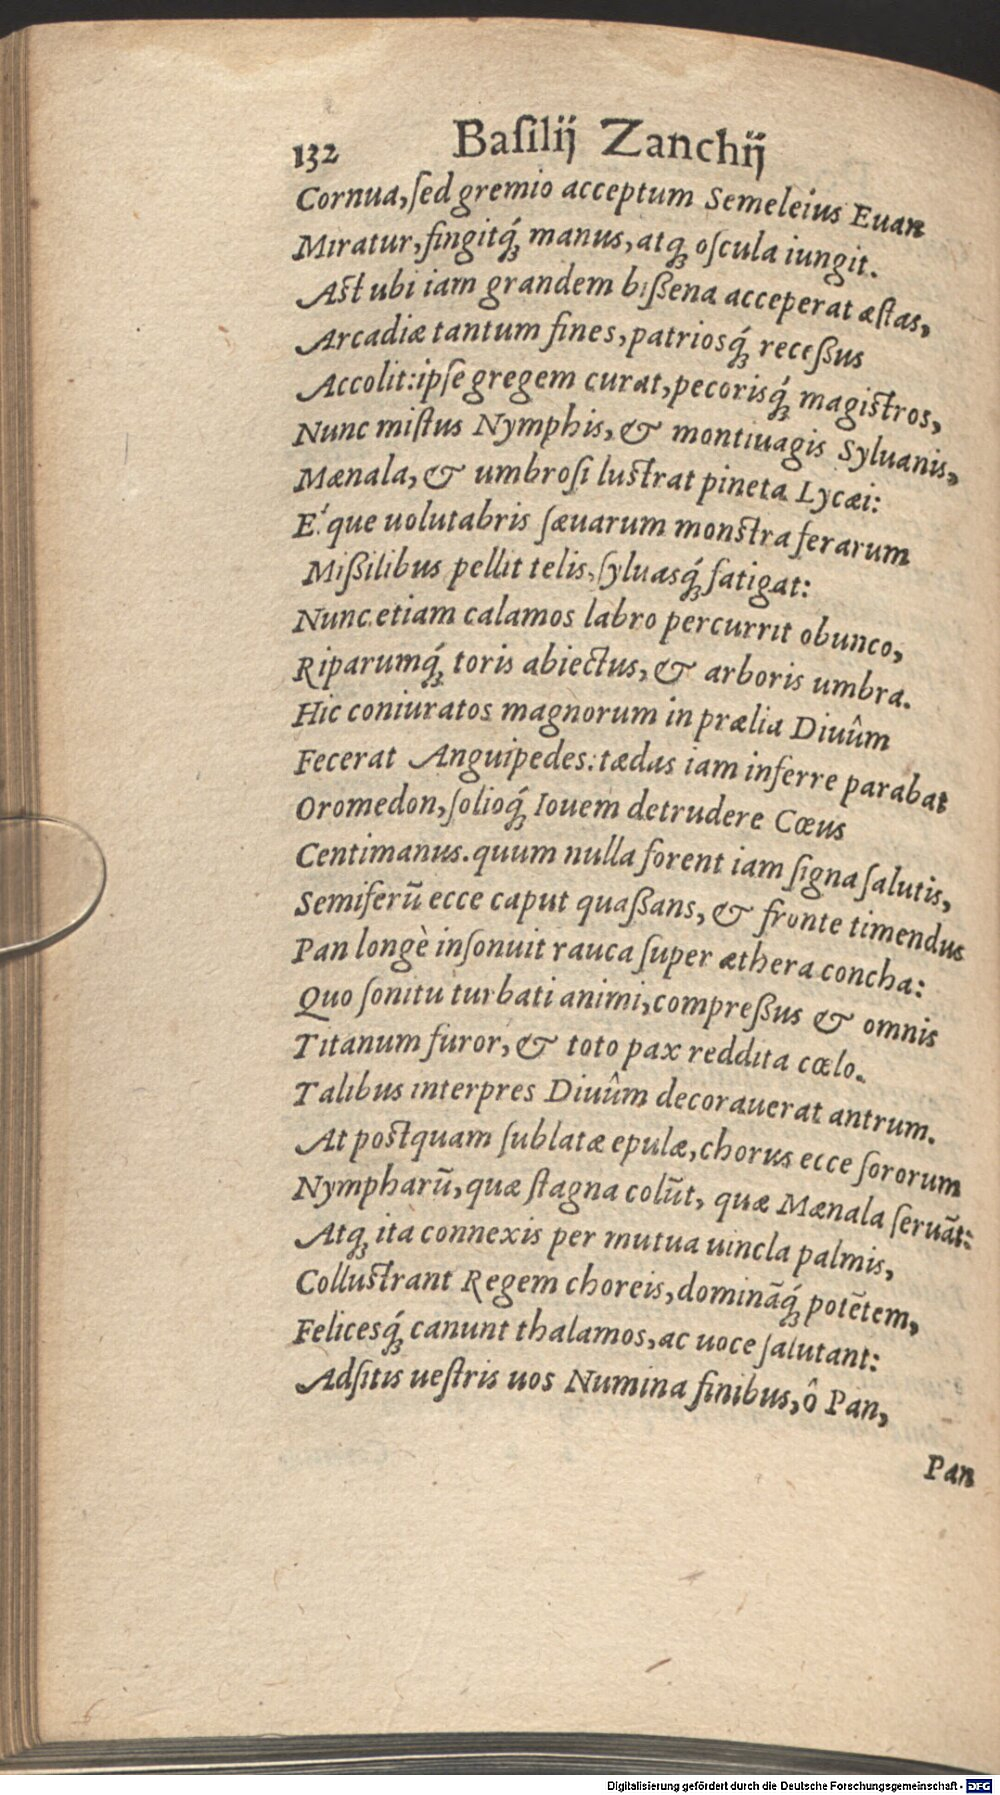 132 Baſilij Zanchij
Cornua, ſed gremio acceptum Semeleius Euan
Miratur, fingitq́; manus, atq; oſcula iungit.
Aſt ubi iam grandem bißena acceperat æſtas,
Arcadiæ tantum fines, patriosq́; receßus
Accolit: ipſe gregem curat, pecorisq́; magiſtros,
Nunc miſtus Nymphis, & montiuagis Syluanis,
Mænala, & umbroſi luſtrat pineta Lycæi:
E'que uolutabris ſæuarum monſtra ferarum
Mißilibus pellit telis, ſyluasq́; fatigat:
Nunc etiam calamos labro percurrit obunco,
Riparumq́; toris abiectus, & arboris umbra.
Hic coniuratos magnorum in prælia Diuûm
Fecerat Anguipedes: tædas iam inferre parabat
Oromedon, ſolioq́; Iouem detrudere Cœus
Centimanus. quum nulla forent iam ſigna ſalutis,
Semiferū ecce caput quaßans, & fronte timendus
Pan longè inſonuit rauca ſuper æthera concha:
Quo ſonitu turbati animi, compreßus & omnis
Titanum furor, & toto pax reddita cœlo.
Talibus interpres Diuûm decorauerat antrum.
At poſtquam ſublatæ epulæ, chorus ecce ſororum
Nympharū, quæ ſtagna colūt, quæ Mænala ſeruāt:
Atq; ita connexis per mutua uincla palmis,
Colluſtrant Regem choreis, domināq́; potētem,
Felicesq́; canunt thalamos, ac uoce ſalutant:
Adſitis ueſtris uos Numina finibus, ô Pan,
Pan
Digitalisierung gefördert durch die Deutsche Forschungsgemeinschaft - DFG